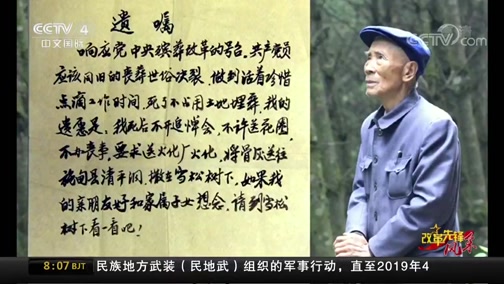 CCTV 4
中文国际
遗嘱
响应党中央殡葬改革的号召。共产党员
应该同旧的丧葬世俗决裂。做到活着珍惜
点滴工作时间,死了不占用土地埋葬。我的
遗愿是:我死后不开追悼会,不许送花圈,
不办丧事,要求送火化厂火化,将骨灰送往
施甸县清平洞,撒在雪松树下,如果我
的亲朋友好和家属子女想念,请到雪松
树下看一看吧!
CCTV.com
改革先锋
风采
8:07 BJT
民族地方武装(民地武)组织的军事行动,直至2019年4